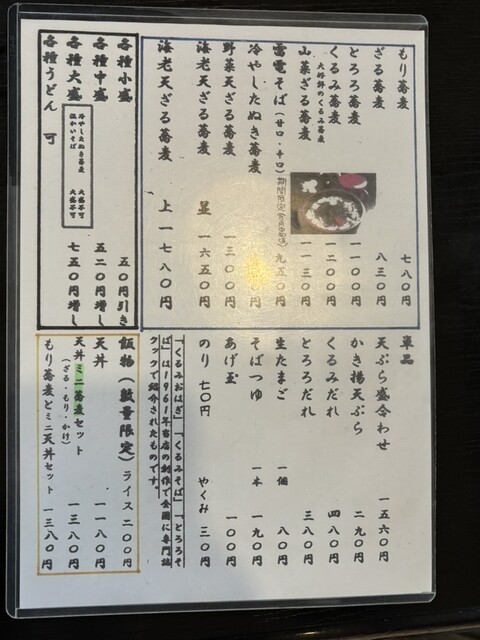 もり蕎麦 七八〇円
ざる蕎麦 八三〇円
とろろ蕎麦 一一〇〇円
くるみ蕎麦 一二〇〇円
大好評のくるみ蕎麦
山菜ざる蕎麦 一一三〇円
雷電そば(甘口・辛口) 九五〇円
期間限定
冷やしたぬき蕎麦
野菜天ざる蕎麦 一三〇〇円
海老天ざる蕎麦 並 一六五〇円
海老天ざる蕎麦 上 一七八〇円
各種小盛 五〇円引き
各種中盛 五二〇円増し
各種大盛 七五〇円増し
冷やしたぬき蕎麦 大盛不可
温かいそば 大盛不可
各種うどん 可
単品
天ぷら盛合わせ 一五六〇円
かき揚天ぷら 二九〇円
くるみだれ 四八〇円
とろろだれ 三八〇円
生たまご 一個 八〇円
そばつゆ 一本 一九〇円
あげ玉 一〇〇円
のり 七〇円 やくみ 三〇円
「くるみおはぎ」「くるみそば」「とろろそば」は1961年当店の創作で全国に専門誌
クックで紹介されたものです。
飯物(数量限定) ライス 二〇〇円
天丼 一一八〇円
天丼ミニ蕎麦セット 一三八〇円
(ざる・もり・かけ)
もり蕎麦とミニ天丼セット 一三八〇円